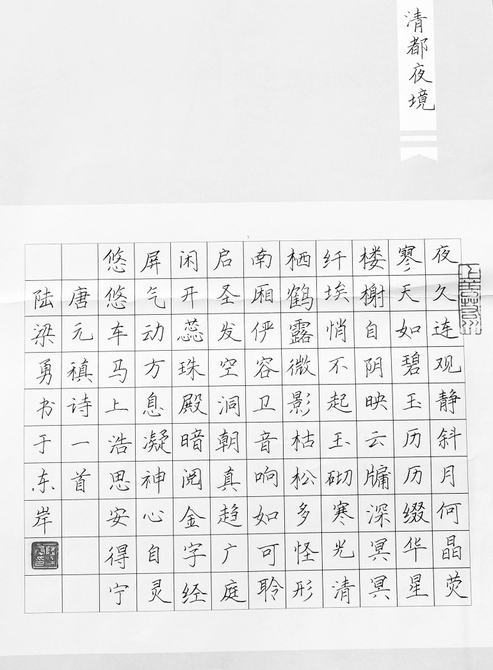 清都夜境
夜久连观静斜月何晶荧
寥天如碧玉历历缀华星
楼榭自阴映云牖深冥冥
纤埃悄不起玉砌寒光清
栖鹤露微影枯松多怪形
南厢俨容卫音响如可聆
启圣发空洞朝真趋广庭
闲开蕊珠殿暗阅金字经
屏气动方息凝神心自灵
悠悠车马上浩思安得宁
唐元稹诗一首
陆梁勇书于东岸